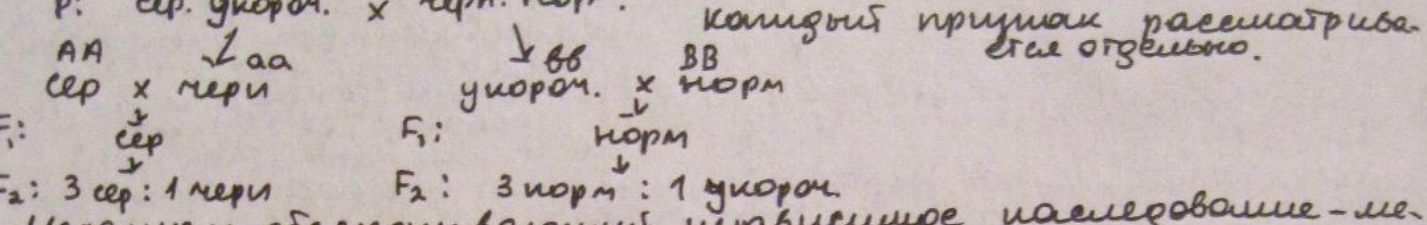 P: сер. укороч. х черн. норм. каждый признак рассматрива-
ется отдельно.
АА аа вв ВВ
сер х черн укороч. х норм
F₁: сер F₁: норм
F₂: 3 сер : 1 черн F₂: 3 норм : 1 укороч.
независимое наследование - ме-